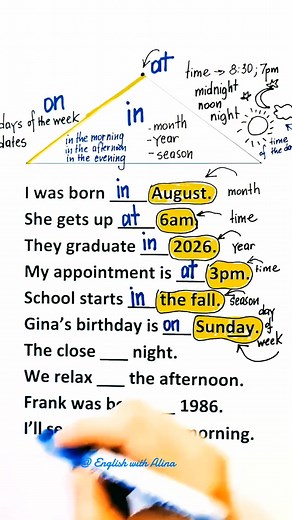 at
time → 8:30; 7pm
midnight
noon
night
on
days of the week
dates
in
in the morning
in the afternoon
in the evening
- month
- year
- season
time
I was born in August. month
She gets up at 6am. time
They graduate in 2026. year
My appointment is at 3pm. time
School starts in the fall. season
Gina's birthday is on Sunday. day of week
The close ___ night.
We relax ___ the afternoon.
Frank was 1986.
I'll
@ English with Alina